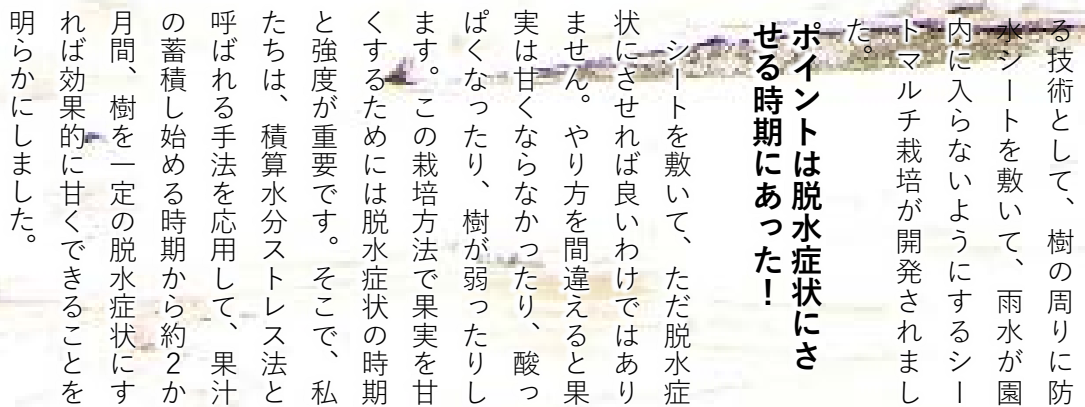 る技術として、樹の周りに防
水シートを敷いて、雨水が園
内に入らないようにするシー
トマルチ栽培が開発されまし
た。
ポイントは脱水症状にさ
せる時期にあった！
シートを敷いて、ただ脱水症
状にさせれば良いわけではあり
ません。やり方を間違えると果
実は甘くならなかったり、酸っ
ぱくなったり、樹が弱ったりし
ます。この栽培方法で果実を甘
くするためには脱水症状の時期
と強度が重要です。そこで、私
たちは、積算水分ストレス法と
呼ばれる手法を応用して、果汁
の蓄積し始める時期から約２か
月間、樹を一定の脱水症状にす
れば効果的に甘くできることを
明らかにしました。